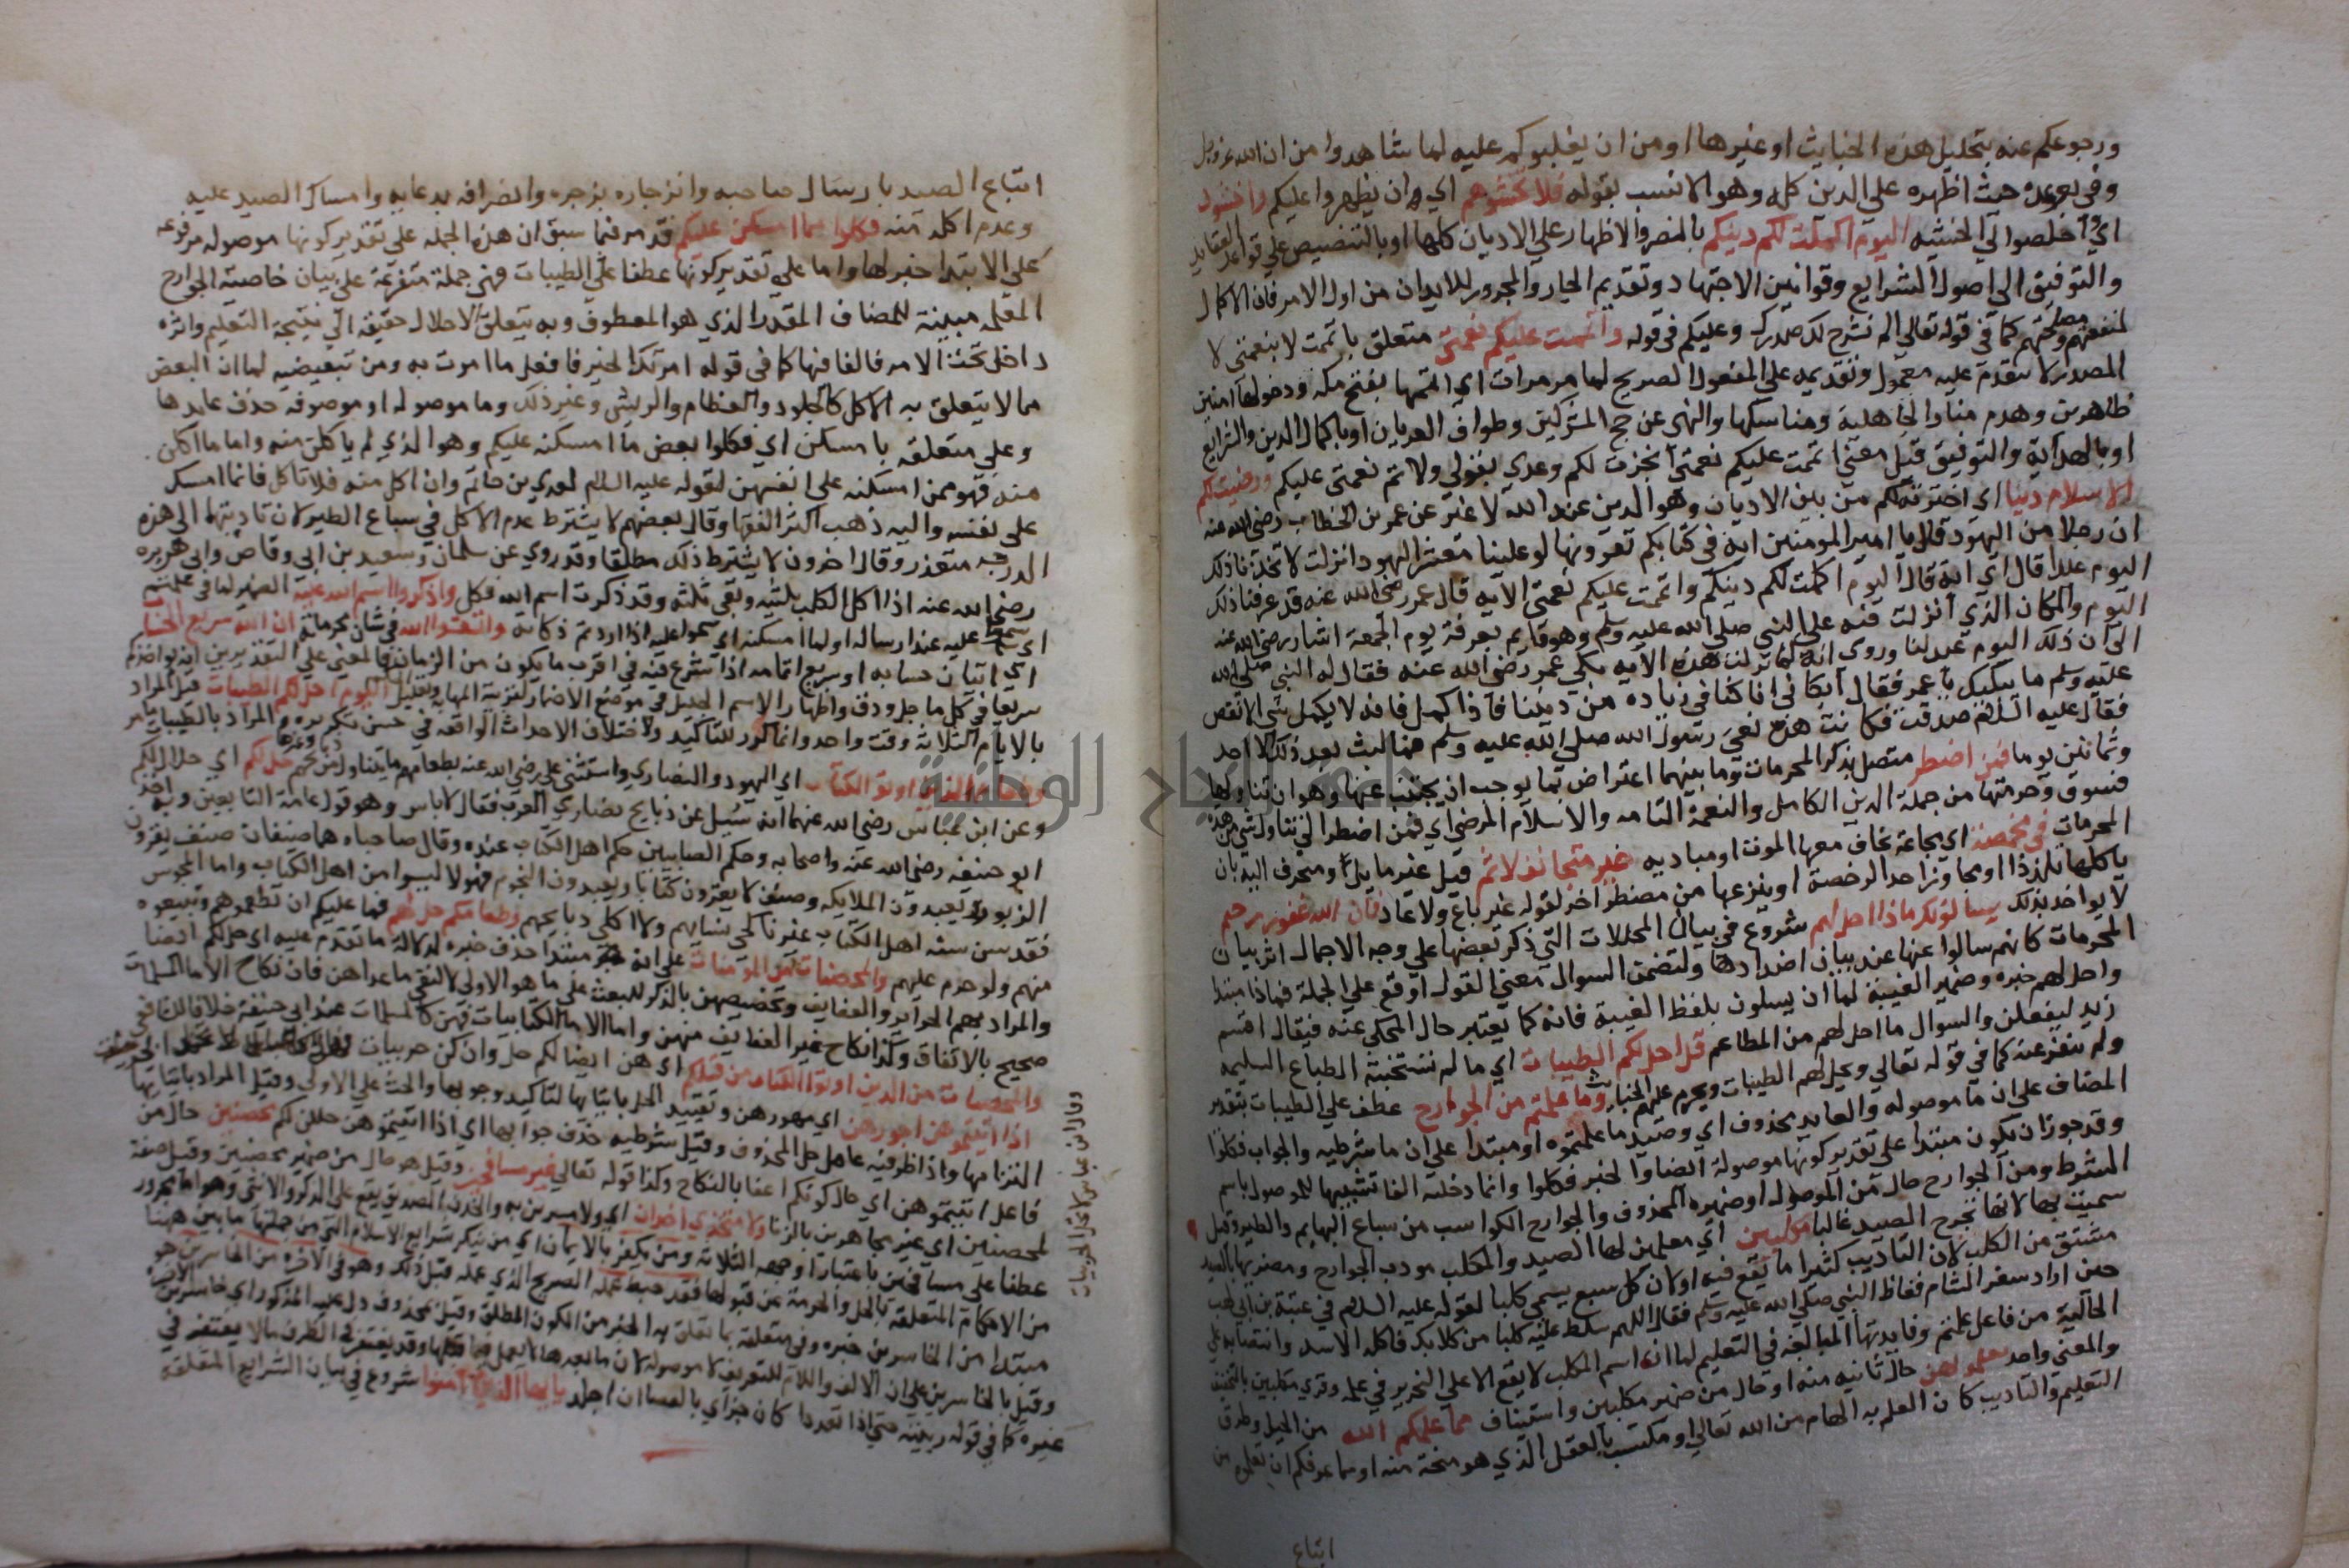 ورجوعكم عنه بتحليل هذه الخبايث او غيرها او من ان يغلبوكم عليه لما شاهدوا من ان الله عز وجل
وفى بوعده حيث اظهره على الدين كله وهو الانسب بقوله فلا تخشوهم اي وان يظهروا عليكم واخشون
اي واخلصوا لي الخشيه اليوم اكملت لكم دينكم بالنصر والاظهار على الاديان كلها او بالتنصيص على قواعد العقايد
والتوفيق الى اصول الشرايع وقوانين الاجتهاد وتقديم الجار والمجرور للايدان من اول الامر فان الاكمال
لمنفعتهم ومصلحتهم كما في قوله تعالى الم نشرح لك صدرك وعليكم في قوله واتممت عليكم نعمتي متعلق باتممت لا بنعمتي لا
المصدر لا يتقدم عليه معموله وتقديمه على المفعول الصريح لما مر مرات اي اتممها بفتح مكه ودخولها امنين
ظاهرين وهدم منار الجاهلية ومناسكها والنهى عن حج المشركين وطواف العريان او باكمال الدين والشرايع
او بالهداية والتوفيق قيل معنى اتممت عليكم نعمتي انجزت لكم وعدي بقولي ولاتم نعمتي عليكم ورضيت لكم
الاسلام دينا اي اخترته لكم من بين الاديان وهو الدين عند الله لا غير عن عمر بن الخطاب رضي الله عنه
ان رجلا من اليهود قال يا امير المومنين اية في كتابكم تقرونها لو علينا معشر اليهود انزلت لاتخذنا ذلك
اليوم عيدا قال اي اية قال اليوم اكملت لكم دينكم واتممت عليكم نعمتي الايه قال عمر رضي الله عنه قد عرفنا ذلك
اليوم والمكان الذي انزلت فيه على النبي صلى الله عليه وسلم وهو قايم بعرفة يوم الجمعة اشار رضي الله عنه
الى ان ذلك اليوم عيد لنا وروى انه لما نزلت هذه الايه بكى عمر رضي الله عنه فقال له النبي صلى الله
عليه وسلم ما يبكيك يا عمر فقال ابكاني انا كنا في زياده من ديننا فاذا كمل فانه لا يكمل شي الا نقص
فقال عليه السلام صدقت فكانت هذه نعى رسول الله صلى الله عليه وسلم فما لبث بعد ذلك الا احد
وثمانين يوما فمن اضطر متصل بذكر المحرمات وما بينهما اعتراض بما يوجب ان يجتنب عنها وهو ان تناولها
فسوق وحرمتها من جملة الدين الكامل والنعمة التامه والاسلام المرضي اي فمن اضطر الى تناول شي من هذه
المحرمات في مخمصة اي مجاعة يخاف معها الموت او مباديه غير متجانف لاثم قيل غير مايل او منحرف اليه بان
ياكلها تلذذا او مجاوزا حد الرخصة او ينزعها من مضطر اخر لقوله غير باغ ولا عاد فان الله غفور رحيم
لا يواخذ بذلك يسالونك ماذا احل لهم شروع في بيان المحللات التي ذكر بعضها على وجه الاجمال اثر بيان
المحرمات كانهم سالوا عنها عند بيان اضدادها ولتضمن السوال معنى القول اوقع على الجملة فماذا مبتدا
واحل لهم خبره وضمير الغيبة لما ان يسلون بلفظ الغيبة فانه كما يعتبر حال المحكي عنه فيقال اقسم
زيد ليفعلن والسوال ما احل لهم من المطاعم قل احل لكم الطيبات اي ما لم تستخبثه الطباع السليمه
ولم تنفر عنه كما في قوله تعالى ويحل لهم الطيبات ويحرم عليهم الخبايث وما علمتم من الجوارح عطف على الطيبات بتقدير
المضاف على ان ما موصوله والعايد محذوف اي وصيد ما علمتموه او مبتدا على ان ما شرطيه والجواب فكلوا
وقد جوز ان يكون مبتدا على تقدير كونها موصولة ايضا والخبر فكلوا وانما دخلته الفا تشبيها للموصول باسم
الشرط ومن الجوارح حال من الموصول او ضميره المحذوف والجوارح الكواسب من سباع البهايم والطير وقيل
سميت بها لانها تجرح الصيد غالبا مكلبين اي معلمين لها الصيد والمكلب مودب الجوارح ومضريها بالصيد
مشتق من الكلب لان التاديب كثيرا ما يقع فيه او لان كل سبع يسمى كلبا لقوله عليه السلام في عتبة بن ابي لهب
حين اراد سفر الشام فغاظ النبي صلى الله عليه وسلم فقال اللهم سلط عليه كلبا من كلابك فاكله الاسد وانتصابه على
الحالية من فاعل علمتم وفايدتها المبالغه في التعليم لما ان اسم المكلب لا يقع الا على النحرير في علمه وقري مكلبين بالتخفيف
والمعنى واحد تعلمونهن حال ثانيه منه او حال من ضمير مكلبين او استيناف مما علمكم الله من الحيل وطرق
التعليم والتاديب كان العلم به الهام من الله تعالى او مكتسب بالعقل الذي هو منحة منه او مما عرفكم ان تعلموه من
اتباع
اتباع الصيد بارسال صاحبه وانزجاره بزجره وانصرافه بدعايه وامساك الصيد عليه
وعدم اكله منه فكلوا مما امسكن عليكم قد مر فيما سبق ان هذه الجمله على تقدير كونها موصوله مرفوعه
على الابتدا خبر لها واما على تقدير كونها عطفا على الطيبات فهي جملة متفرعة على بيان خاصية الجوارح
المعلمه مبينة للمضاف المقدر الذي هو المعطوف وبه يتعلق الاحلال حقيقه الى نتيجة التعليم واثره
داخل تحت الامر فالفا فيها كما في قوله امرتك الخير فافعل ما امرت به ومن تبعيضيه لما ان البعض
مما لا يتعلق به الاكل كالجلود والعظام والريش وغير ذلك وما موصوله او موصوفه حذف عايدها
وعلى متعلقه بامسكن اي فكلوا بعض ما امسكنه عليكم وهو الذي لم ياكلن منه واما ما اكلن
منه فهو ممن امسكنه على انفسهن لقوله عليه السلام لعدي بن حاتم وان اكل منه فلا تاكل فانما امسك
على نفسه واليه ذهب اكثر الفقها وقال بعضهم لا يشترط عدم الاكل في سباع الطير لان تاديبها الى هذه
الدرجه متعذر وقال اخرون لا يشترط ذلك مطلقا وقد روي عن سلمان وسعيد بن ابي وقاص وابي هريره
رضي الله عنه اذا اكل الكلب ثلثيه وبقي ثلثه وقد ذكرت اسم الله فكل واذكروا اسم الله عليه الضمير لما في علمتم
اي سموا عليه عند ارساله او لما امسكنه اي سموا عليه اذا اردتم ذكاته واتقوا الله في شان محرماته ان الله سريع الحساب
اي اتيان حسابه او سريع اتمامه اذا شرع فيه في اقرب ما يكون من الزمان والمعنى على التقديرين انه يواخذكم
سريعا في كل ما جل ودق واظهار الاسم الجليل في موضع الاضمار لتربية المهابه وتعليل اليوم احل لكم الطيبات قيل المراد
بالايام الثلاثة وقت واحد وانما كرر للتاكيد ولاختلاف الاحداث الواقعه في حسن تكريره والمراد بالطيبات ما مر
وطعام الذين اوتوا الكتاب اي اليهود والنصارى واستثنى علي رضي الله عنه حل لكم اي حلال لكم
وعن ابن عباس رضي الله عنهما انه سئل عن ذبايح نصارى العرب فقال لا باس وهو قول عامة التابعين وبه اخذ
ابو حنيفه رضي الله عنه واصحابه وحكم الصابيين حكم اهل الكتاب عنده وقال صاحباه هما صنفان صنف يقرون
الزبور ويعبدون الملايكه وصنف لا يقرون كتابا ويعبدون النجوم فهولا ليسوا من اهل الكتاب واما المجوس
فقد سن سنة اهل الكتاب غير ناكحي نسايهم ولا اكلي ذبايحهم وطعامكم حل لهم فما عليكم ان تطعموهم وتبيعوه
منهم ولو حرم عليهم والمحصنات من المومنات على انه مبتدا حذف خبره لدلالة ما تقدم عليه اي حل لكم ايضا
والمراد بهم الحراير والعفايف وتخصيصهن بالذكر للبعث على ما هو الاولى لا لنفي ما عداهن فان نكاح الاما المسلمات
صحيح بالاتفاق وكذا نكاح غير العفايف منهن واما الاما الكتابيات فهن كالمسلمات عند ابي حنيفة خلافا للشافعي
والمحصنات من الذين اوتوا الكتاب من قبلكم اي هن ايضا لكم حل وان كن حربيات
اذا اتيتموهن اجورهن اي مهورهن وتقييد الحل بايتايها لتاكيد وجوبها والحث على الاولى وقيل المراد بايتايها
التزامها واذا ظرفيه عاملها حل المحذوف وقيل شرطيه حذف جوابها اي اذا اتيتموهن حللن لكم محصنين حال من
فاعل اتيتموهن اي حال كونكم اعفا بالنكاح وكذا قوله تعالى غير مسافحين وقيل هو حال من ضمير محصنين وقيل صفة
لمحصنين اي غير مجاهرين بالزنا ولا متخذي اخدان اي ولا مسرين به والخدن الصديق يقع على الذكر والانثى وهو اما مجرور
عطفا على مسافحين باعتبار اوجهه الثلاثة ومن يكفر بالايمان اي من ينكر شرايع الاسلام التي من جملتها ما بين ههنا
من الاحكام المتعلقة بالحل والحرمة عن قبولها فقد حبط عمله الصريح الذي عمله قبل ذلك وهو في الاخره من الخاسرين هو
مبتدا من الخاسرين خبره وفي متعلقة بما تعلق به الخبر من الكون المطلق وقيل بمحذوف دل عليه المذكور اي خاسر في الاخرة
وقيل بالخاسرين على ان الالف واللام للتعريف لا موصوله لان ما بعدها لا يعمل فيما قبلها وقد يغتفر في الظرف ما لا يغتفر في
غيره كما في قوله ربيته حتى اذا تمعددا كان جزاي بالعصا ان اجلد يا ايها الذين امنوا شروع في بيان الشرايع المتعلقه
وقال ابن عباس لا تحل الحربيات